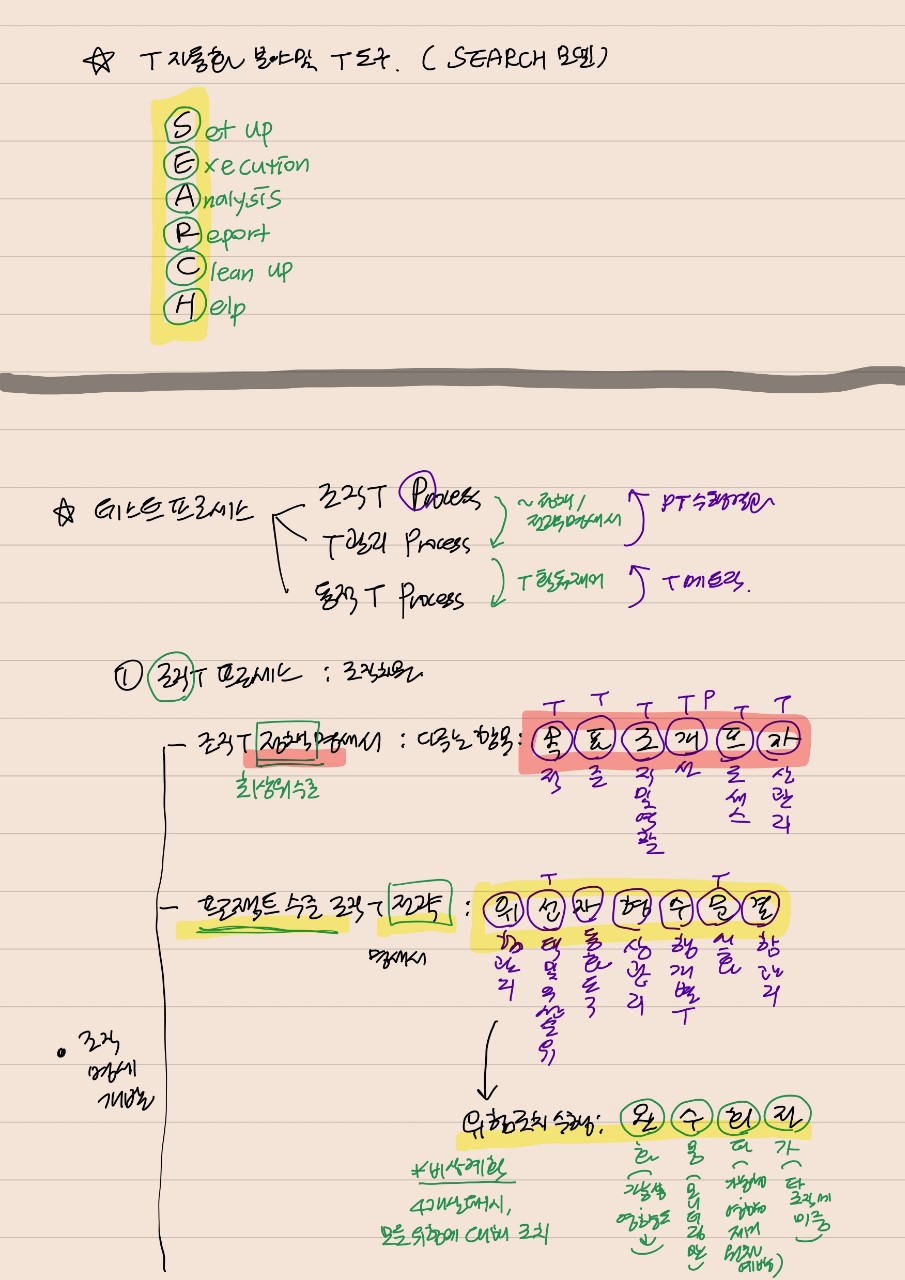 ☆ T 자동화 분야 및 T 도구. ( SEARCH 모델 )
Set up
Execution
Analysis
Report
Clean up
Help
☆ 테스트 프로세스
조직 T Process
T 관리 Process
동적 T Process
~정책/
전략명세서
T 활동제어
T 메트릭.
① 조직 T 프로세스 : 조직차원
- 조직 T 정책 명세서 : 다루는 항목 : 목 표 조 개 프 자
T T T T P T T
적 준 직및역할 선 로세스 산관리
최상위수준
- 프로젝트 수준 조직 T 전략 : 위 선 자 형 수 문 결
T T
명세서
험관리 택및우선순위 동화도구 상관리 행개별T 서화 함관리
• 조직
명세
개발
위험조치 수행 : 완 수 회 전
화 용 피 가
(가능성 영향도↓) (모니터링만) (가능성 영향 제거 원천 예방) (타 조직에 이증)
*비상계획
4개 실패시,
모든 위험에 대해 조치